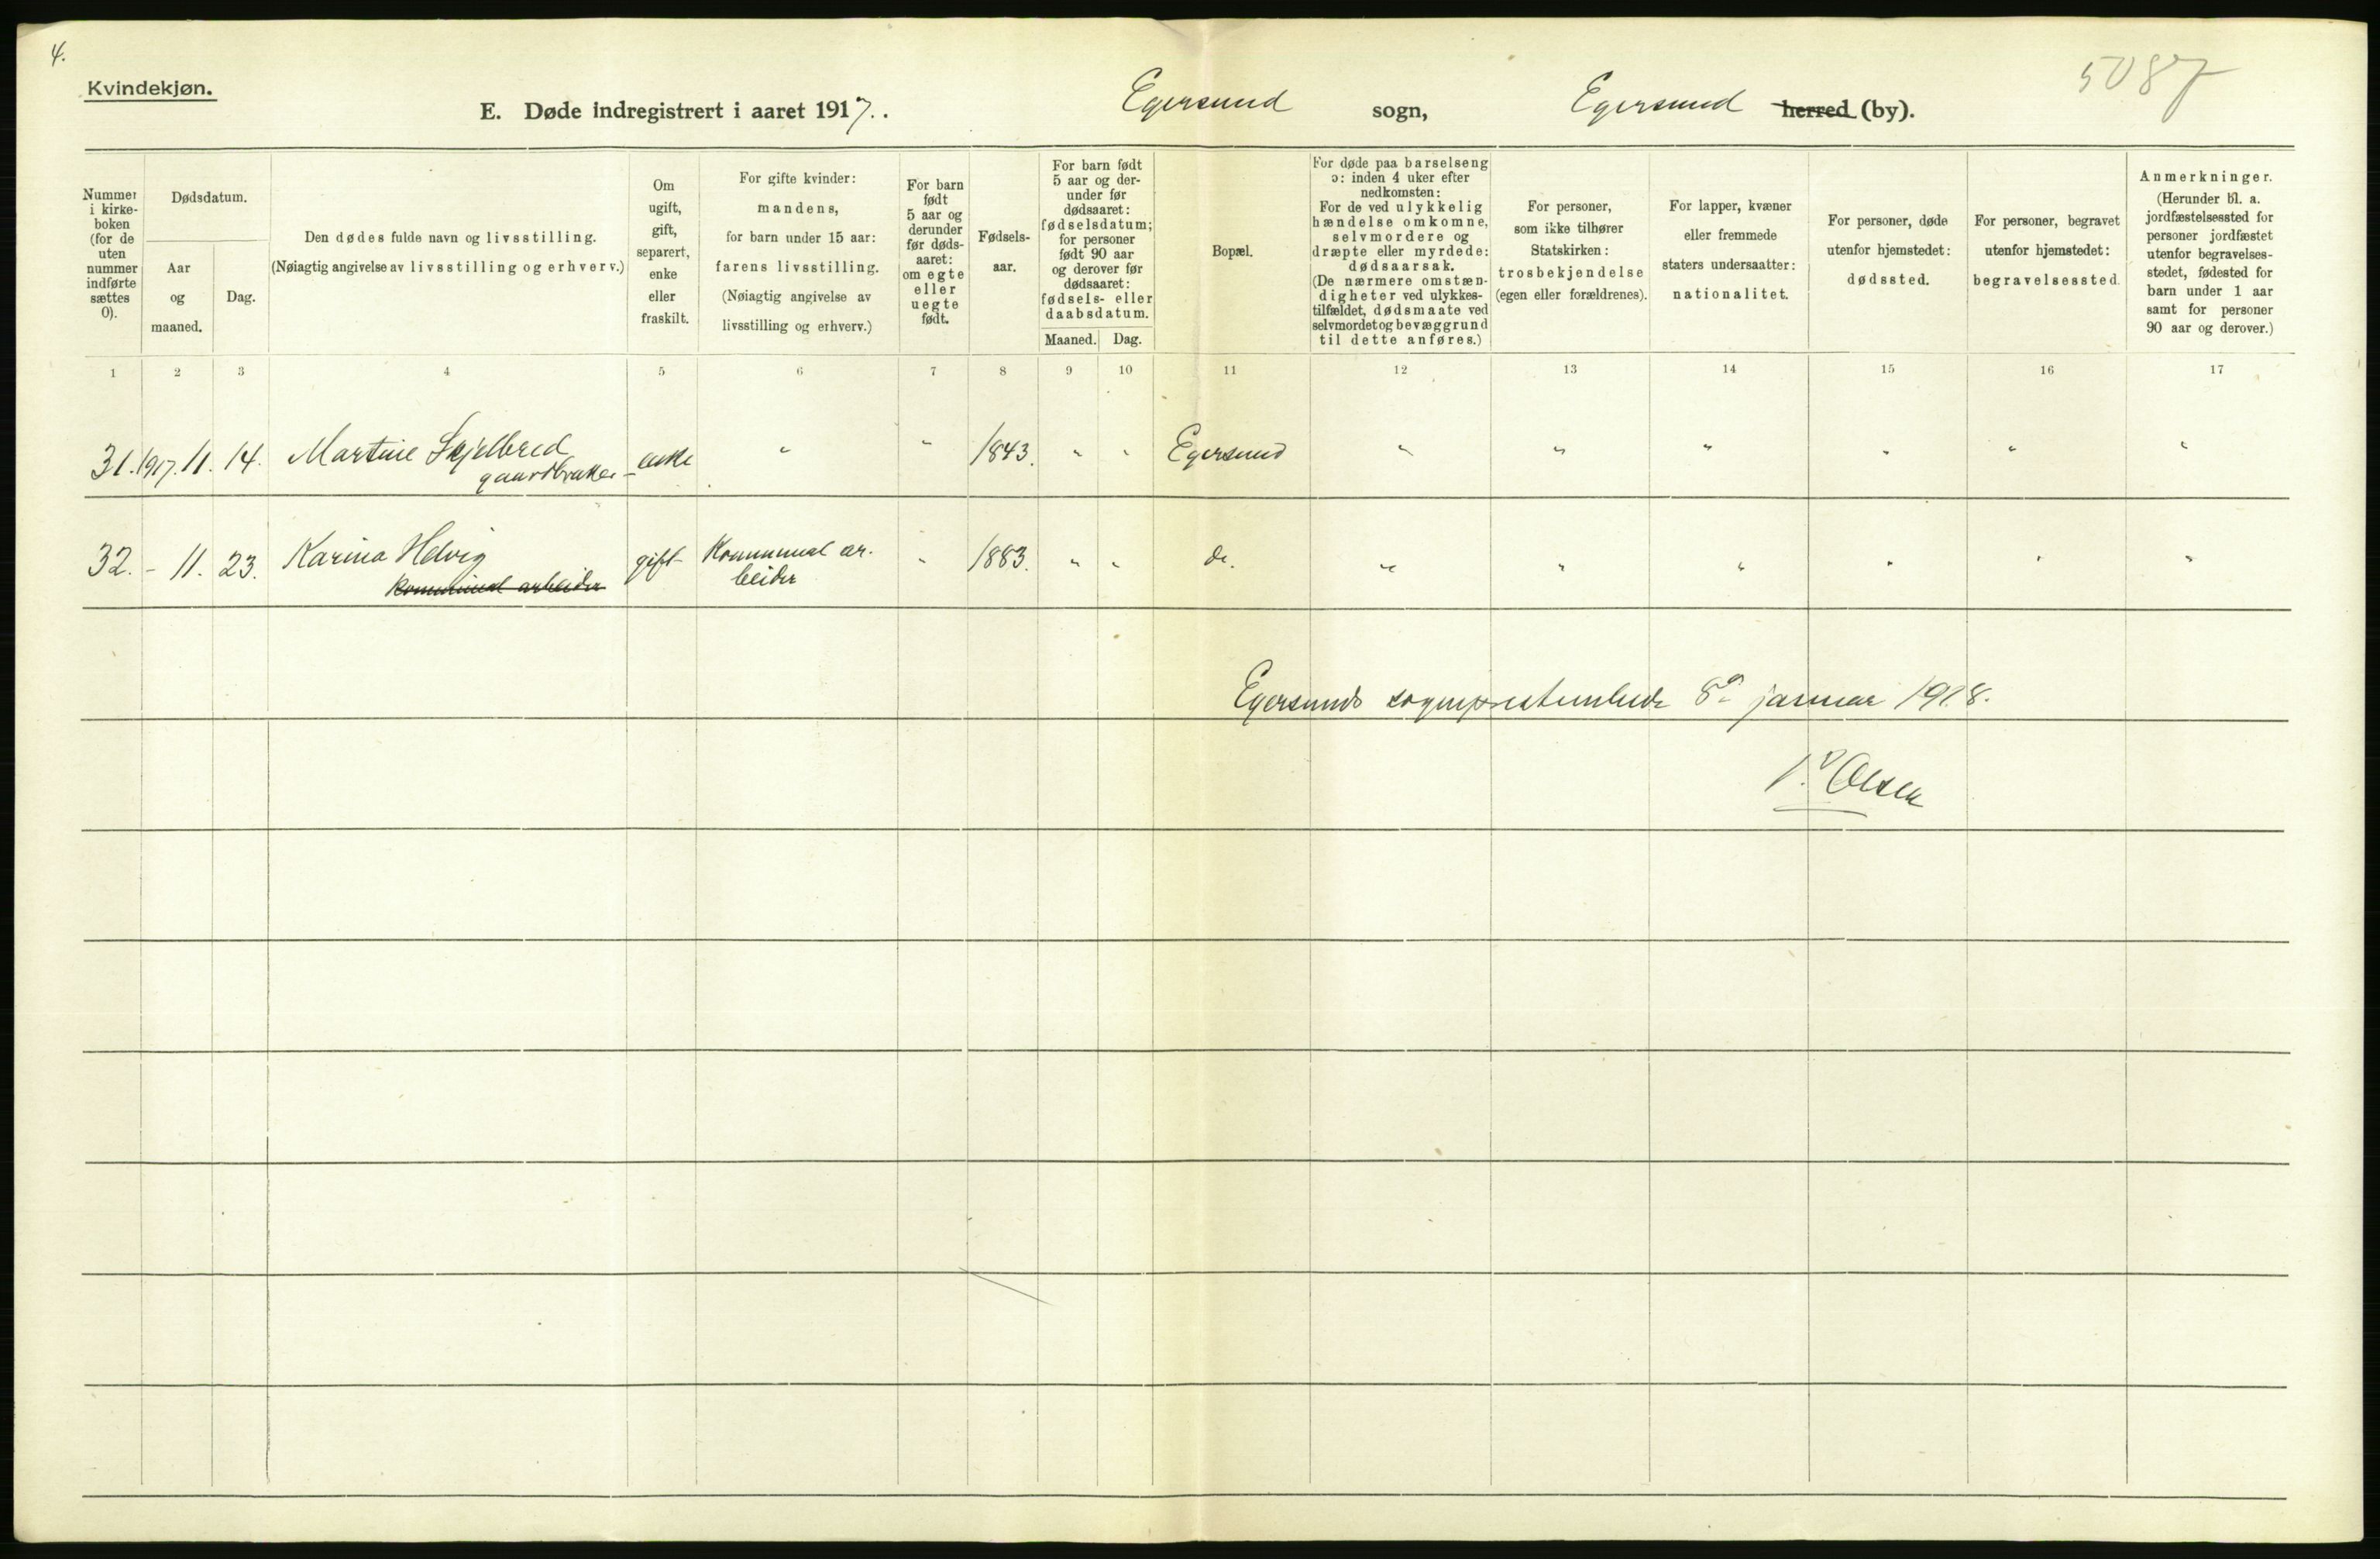 4.
5087
Kvindekjøn.
E. Døde indregistrert i aaret 1917. . Egersund sogn, Egersund herred (by).
Nummer
i kirke-
boken
(for de
uten
nummer
indførte
sættes
0).
Dødsdatum.
Aar
og
maaned.
Dag.
Den dødes fulde navn og livsstilling.
(Nøiagtig angivelse av livsstilling og erhverv.)
Om
ugift,
gift,
separert,
enke
eller
fraskilt.
For gifte kvinder:
mandens,
for barn under 15 aar:
farens livsstilling.
(Nøiagtig angivelse av
livsstilling og erhverv.)
For barn
født
5 aar og
derunder
før døds-
aaret:
om egte
eller
uegte
født.
Fødsels-
aar.
For barn født
5 aar og der-
under før
dødsaaret:
fødselsdatum;
for personer
født 90 aar
og derover før
dødsaaret:
fødsels- eller
daabsdatum.
Maaned. Dag.
Bopæl.
For døde paa barselseng
ɔ: inden 4 uker efter
nedkomsten:
For de ved ulykkelig
hændelse omkomne,
selvmordere og
dræpte eller myrdede:
dødsaarsak.
(De nærmere omstæn-
digheter ved ulykkes-
tilfældet, dødsmaate ved
selvmordet og bevæggrund
til dette anføres.)
For personer,
som ikke tilhører
Statskirken:
trosbekjendelse
(egen eller forældrenes).
For lapper, kvæner
eller fremmede
staters undersaatter:
nationalitet.
For personer, døde
utenfor hjemstedet:
dødssted.
For personer, begravet
utenfor hjemstedet:
begravelsessted.
Anmerkninger.
(Herunder bl. a.
jordfæstelsessted for
personer jordfæstet
utenfor begravelses-
stedet, fødested for
barn under 1 aar
samt for personer
90 aar og derover.)
1 2 3 4 5 6 7 8 9 10 11 12 13 14 15 16 17
31. 1917. 11. 14. Martine Skjelbred enke " " 1843. " " Egersund " " " " " "
gaardbruker
32. - 11. 23. Karina Helvig gift Kommunal ar- " 1883. " " do. " " " " " "
beider
Kommunal arbeider
Egersunds sogneprestembede 8de januar 1918.
Olsen